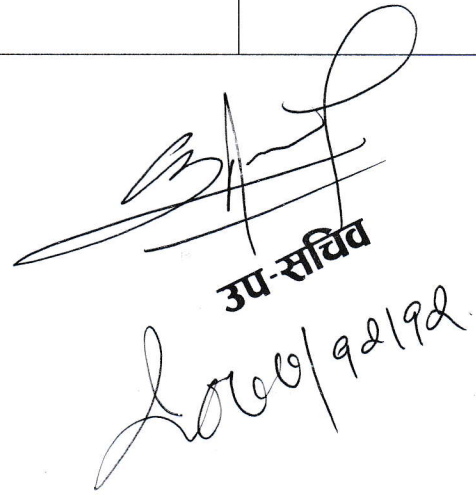 उप-सचिव
२०७७/१२/१२